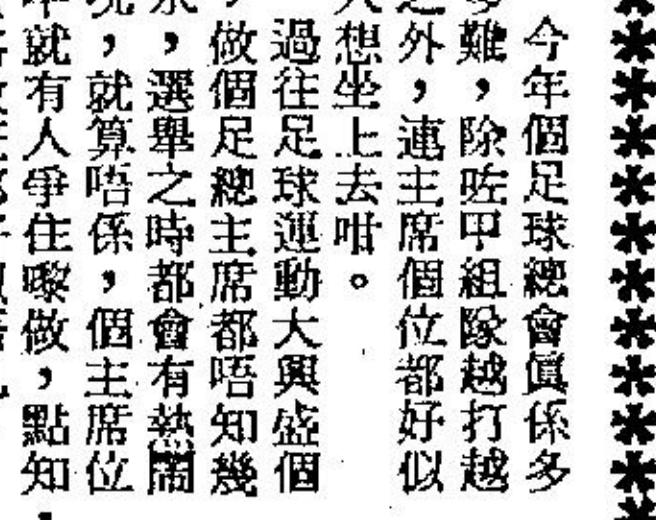 今年個足球總會眞係多
難，除咗甲組隊越打越
之外，連主席個位都好似
人想坐上去咁。
過往足球運動大興盛個
，做個足總主席都唔知幾
，選舉之時都會有熱鬧
，就算唔係，個主席位
就有人爭住嚟做，點知